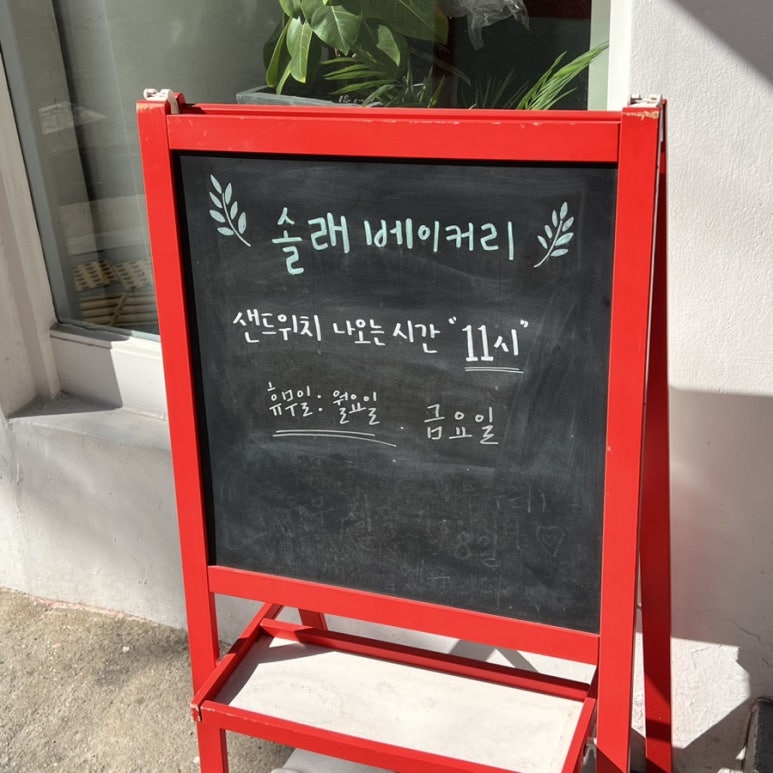 솔래 베이커리
샌드위치 나오는 시간 "11시"
휴무일: 월요일 . 금요일
8일